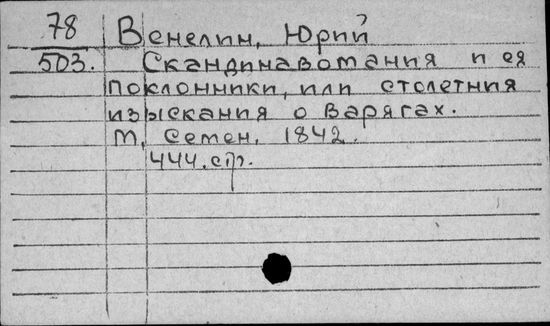 78 Венелин, Юрий
503. Скандинавомания и ея
поклонники, или столетния
изыскания о варягах.
М, Семен, 1842.
444.стр.